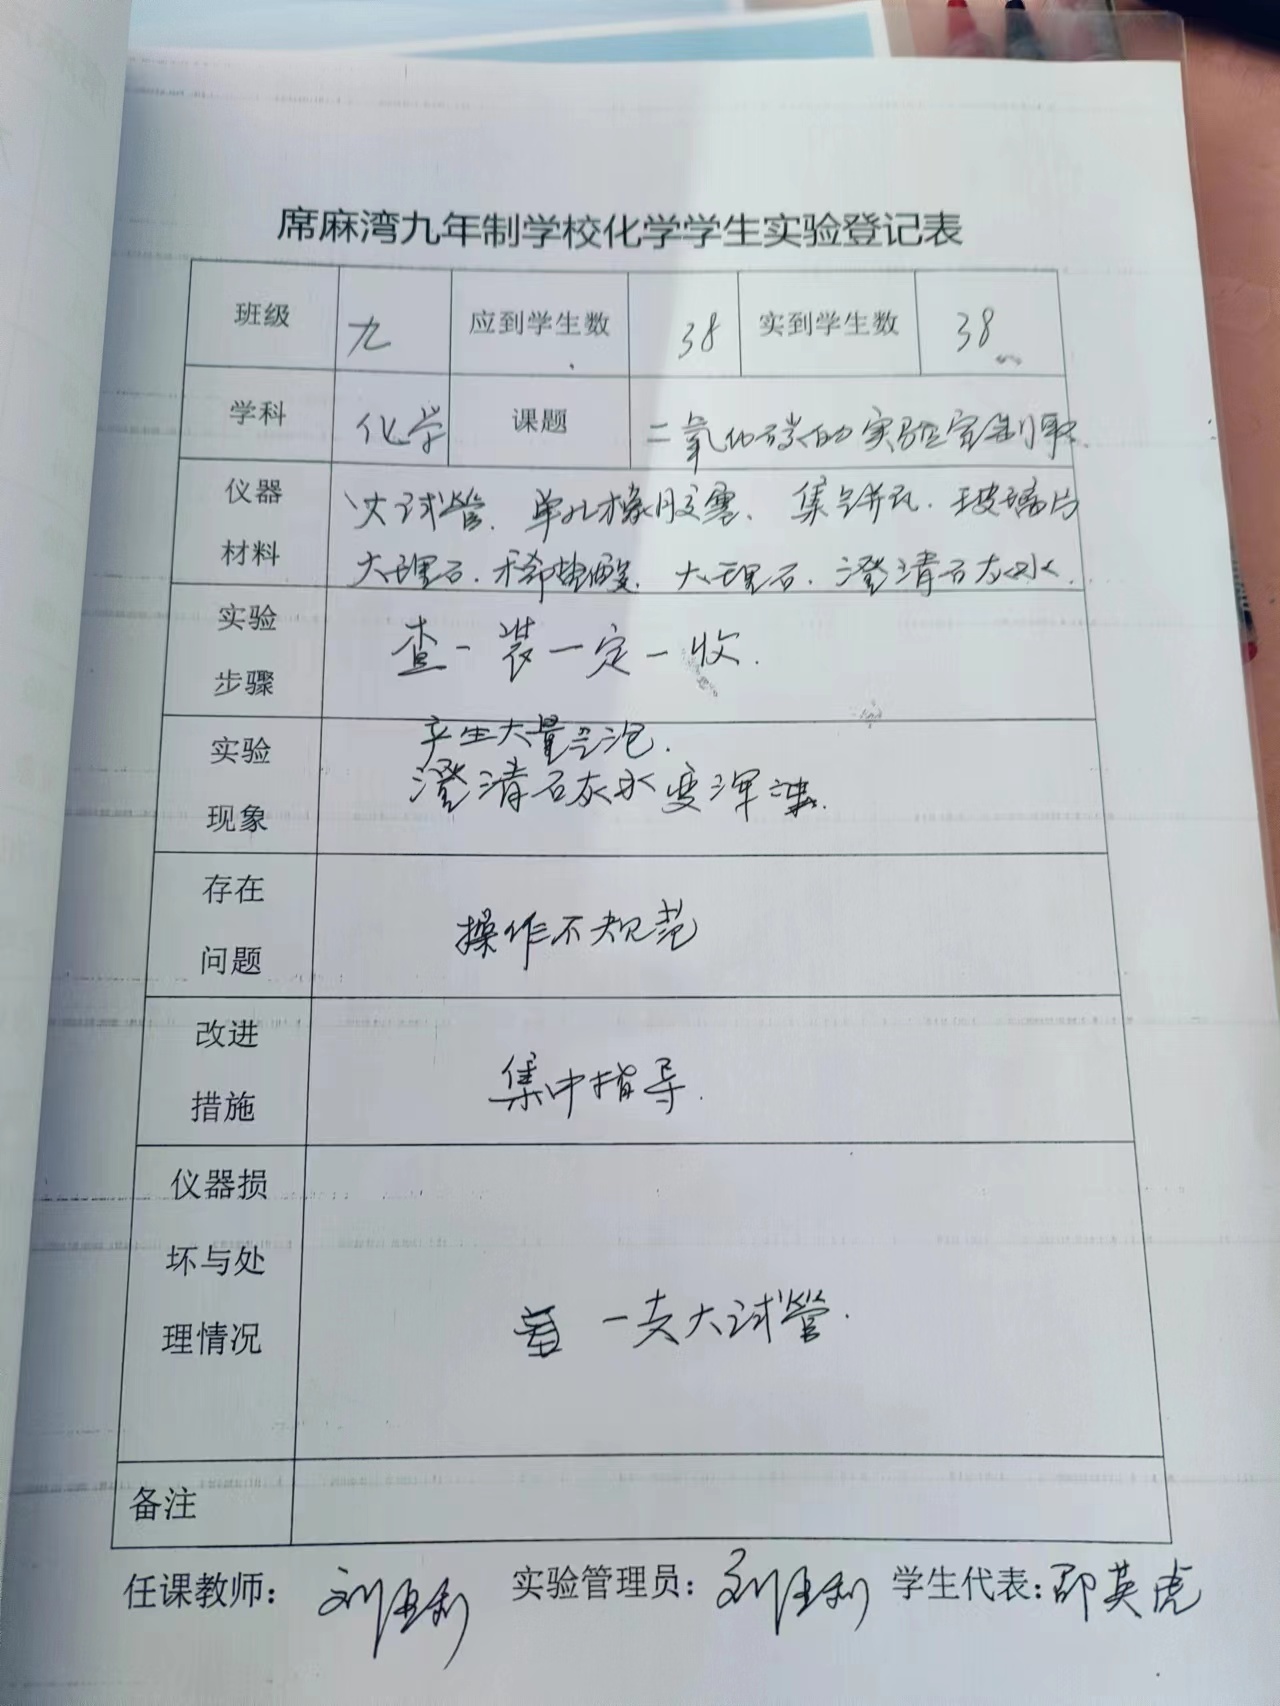 席麻湾九年制学校化学学生实验登记表
班级 九 应到学生数 38 实到学生数 38
学科 化学 课题 二氧化碳的实验室制取
仪器材料 大试管、单孔橡胶塞、集气瓶、玻璃片
大理石、稀盐酸、大理石、澄清石灰水.
实验步骤 查一装一定一收.
实验现象 产生大量气泡.
澄清石灰水变浑浊.
存在问题 操作不规范
改进措施 集中指导.
仪器损坏与处理情况 一支大试管.
备注
任课教师: 实验管理员: 学生代表: 邵英虎